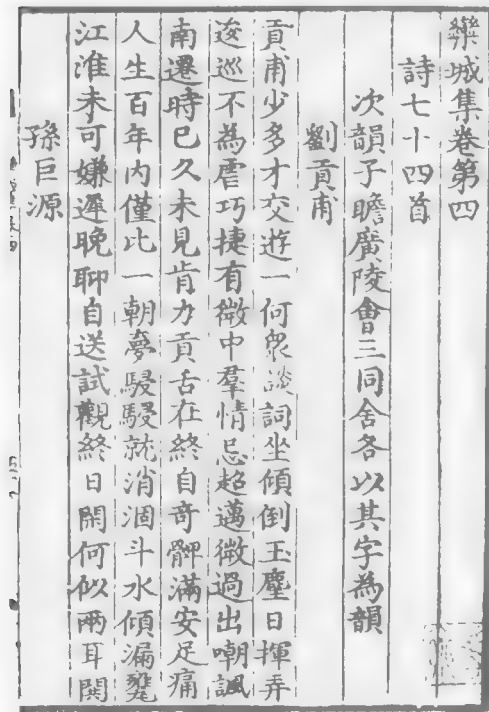 欒城集卷第四
詩七十四首
次韻子瞻廣陵會三同舍各以其字為韻
劉貢甫
貢甫少多才交遊一何衆談詞坐傾倒玉麈日揮弄
逡巡不為虐巧捷有微中羣情忌超邁微過出嘲諷
南遷時已久未見肯力貢舌在終自奇髀滿安足痛
人生百年内僅此一朝夢駸駸就消涸斗水傾漏甕
江淮未可嫌遲晩聊自送試觀終日閑何似兩耳閧
孫巨源